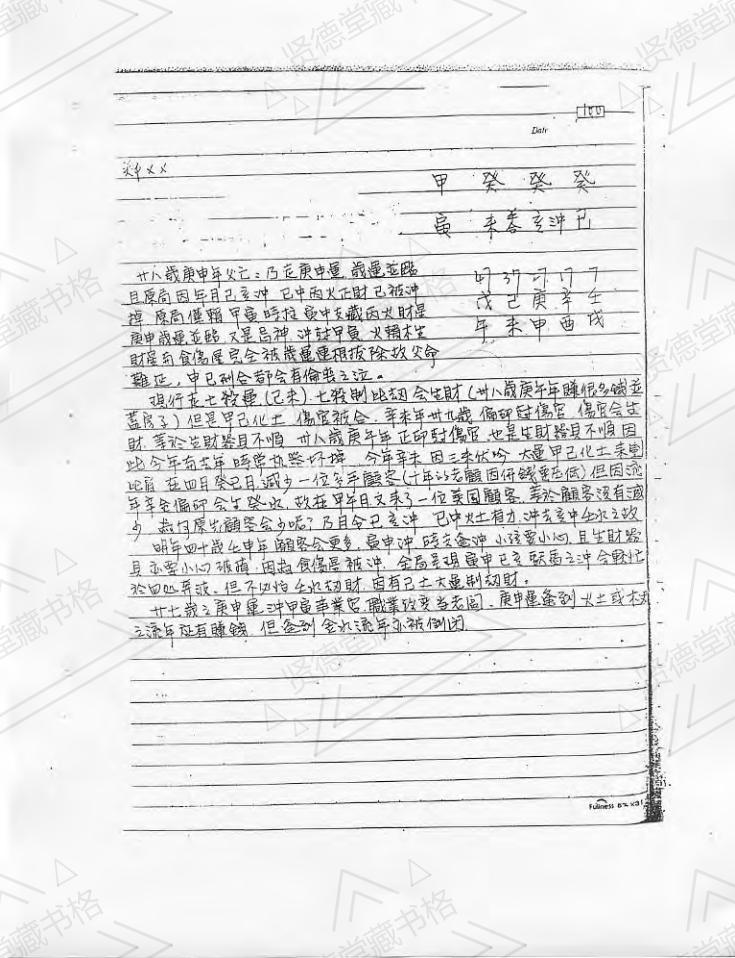 100
Date
甲 癸 癸 癸
寅 未暮亥沖巳
47 37 27 17 7
戊 己 庚 辛 壬
午 未 申 酉 戌
廿八歲庚申年父亡:乃走庚申運,歲運並臨
且原局因年月巳亥沖,巳中丙火正財已被沖
掉,原局僅賴甲寅時柱寅中支藏丙火財星
庚申歲運並臨,又是忌神,沖尅甲寅,火賴木生
財星與食傷星完全被歲運連根拔除故父命
難延,申巳刑合都會有倫喪之泣。
現行在七殺運(己未),七殺制比劫會生財(卅八歲庚午年賺很多錢並
蓋房子)但是甲己化土,傷官被合,辛未年卅九歲,偏印尅傷官,傷官會生
財,等於生財器具不順,卅八歲庚午年正印尅傷官,也是生財器具不順因
此今年與去年時常機器坏掉,今年辛未因三未伏吟,大運甲己化土來
比肩,在四月癸巳月,減少一位多手顧客(十年的老顧因併錢低)但因流
年辛金偏印會生癸水,故在甲午月又來了一位美國顧客,等於顧客沒有減
少,為何原先顧客會少呢?乃月令巳亥沖,巳中火土有力,沖去亥中壬水之故
明年四十歲壬申年顧客會更多,寅申沖,時支逢沖,小孩要小心,且生財器
具亦要小心破損,因為食傷是被沖,全局呈現寅申巳亥驛馬之沖會較忙
於四処奔波,但不必怕壬水劫財,因有己土大運制劫財。
廿七歲之庚申運沖甲寅事業宮,職業改变当老闆,庚申運逢到火土或木火
之流年应有賺錢,但逢到金水流年亦被倒閉
Fullness